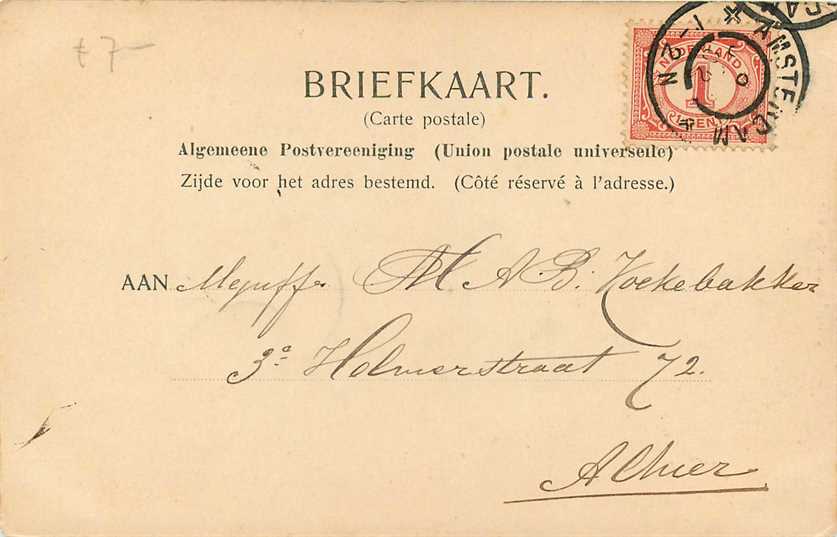 £ 7-
NEDERLAND
1
CENT
AMSTERDAM
BRIEFKAART.
(Carte postale)
Algemeene Postvereeniging (Union postale universelle)
Zijde voor het adres bestemd. (Côté réservé à l'adresse.)
AAN Mejuffr M A B. Koekebakker
3e Helmerstraat 72.
Alhier